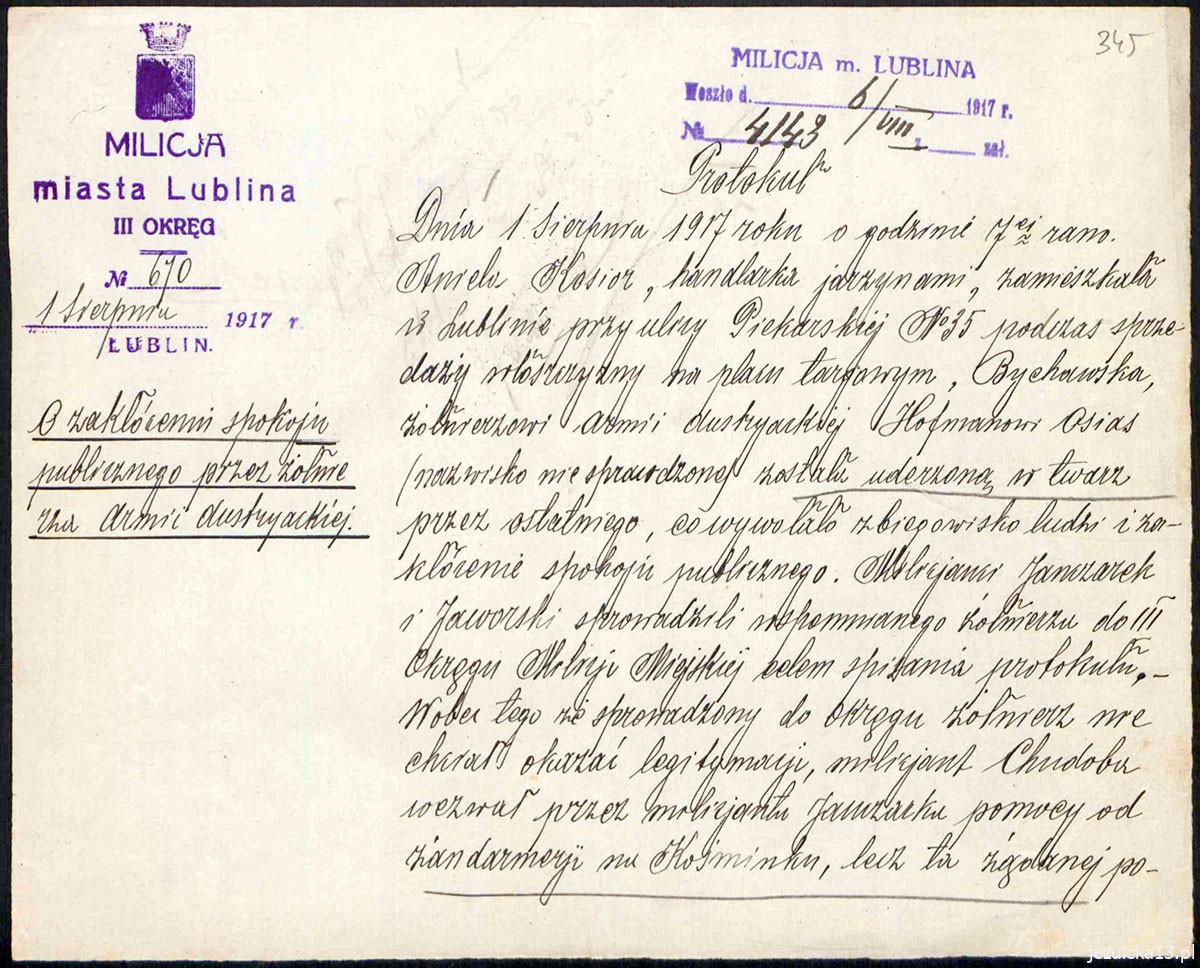 345
MILICJA
miasta Lublina
III OKRĘG
№ 670
1 Sierpnia 1917 r.
LUBLIN.
O zakłóceniu spokoju
publicznego przez żółnie
rza Armii Austryackiej.
MILICJA m. LUBLINA
Weszło d. 6/VIII 1917 r.
№ 4143 z zał.
Protokuł
Dnia 1 Sierpnia 1917 roku o godzinie 7ej rano.
Aniela Kosior, handlarka jarzynami, zamieszkała
w Lublinie przy ulicy Piekarskiej №35 podczas sprze
daży włoszczyzny na placu targowym, Bychawska,
żołnierzowi Armii Austryackiej Hofmanowi Osias
(nazwisko nie sprawdzone) została uderzoną w twarz
przez ostatniego, co wywołało zbiegowisko ludzi i za-
kłócenie spokoju publicznego. Milicjanci Janczarek
i Jaworski sprowadzili wspomnianego żołnierza do III
Okręgu Milicji Miejskiej celem spisania protokułu.-
Wobec tego że sprowadzony do Okręgu żołnierz nie
chciał okazać legitymacji, milicjant Chudoba
wezwał przez milicjanta Janczarka pomocy od
żandarmerji na Kośminku, lecz ta żądanej po-
jezuicka13.pl